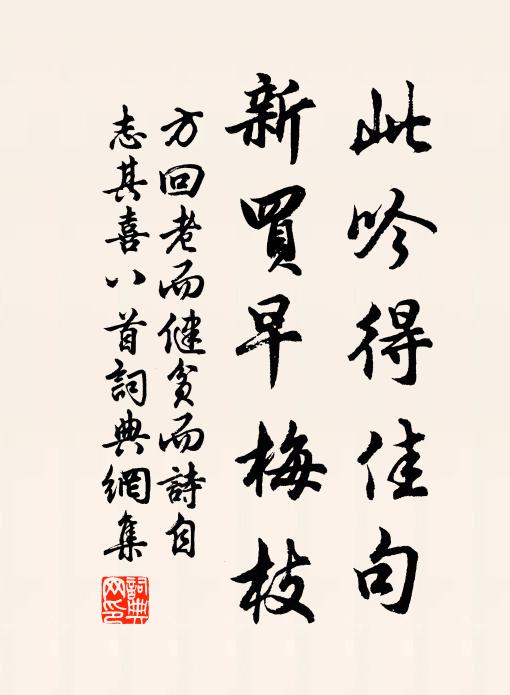 此吟得佳句
新買早梅枝
方回老而健貧而詩自
志其喜八首詞典網集
詞典網印